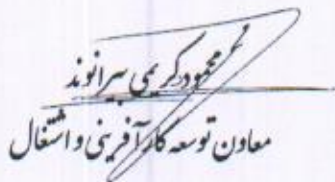 محمود کریمی بیرانوند
معاون توسعه کارآفرینی و اشتغال